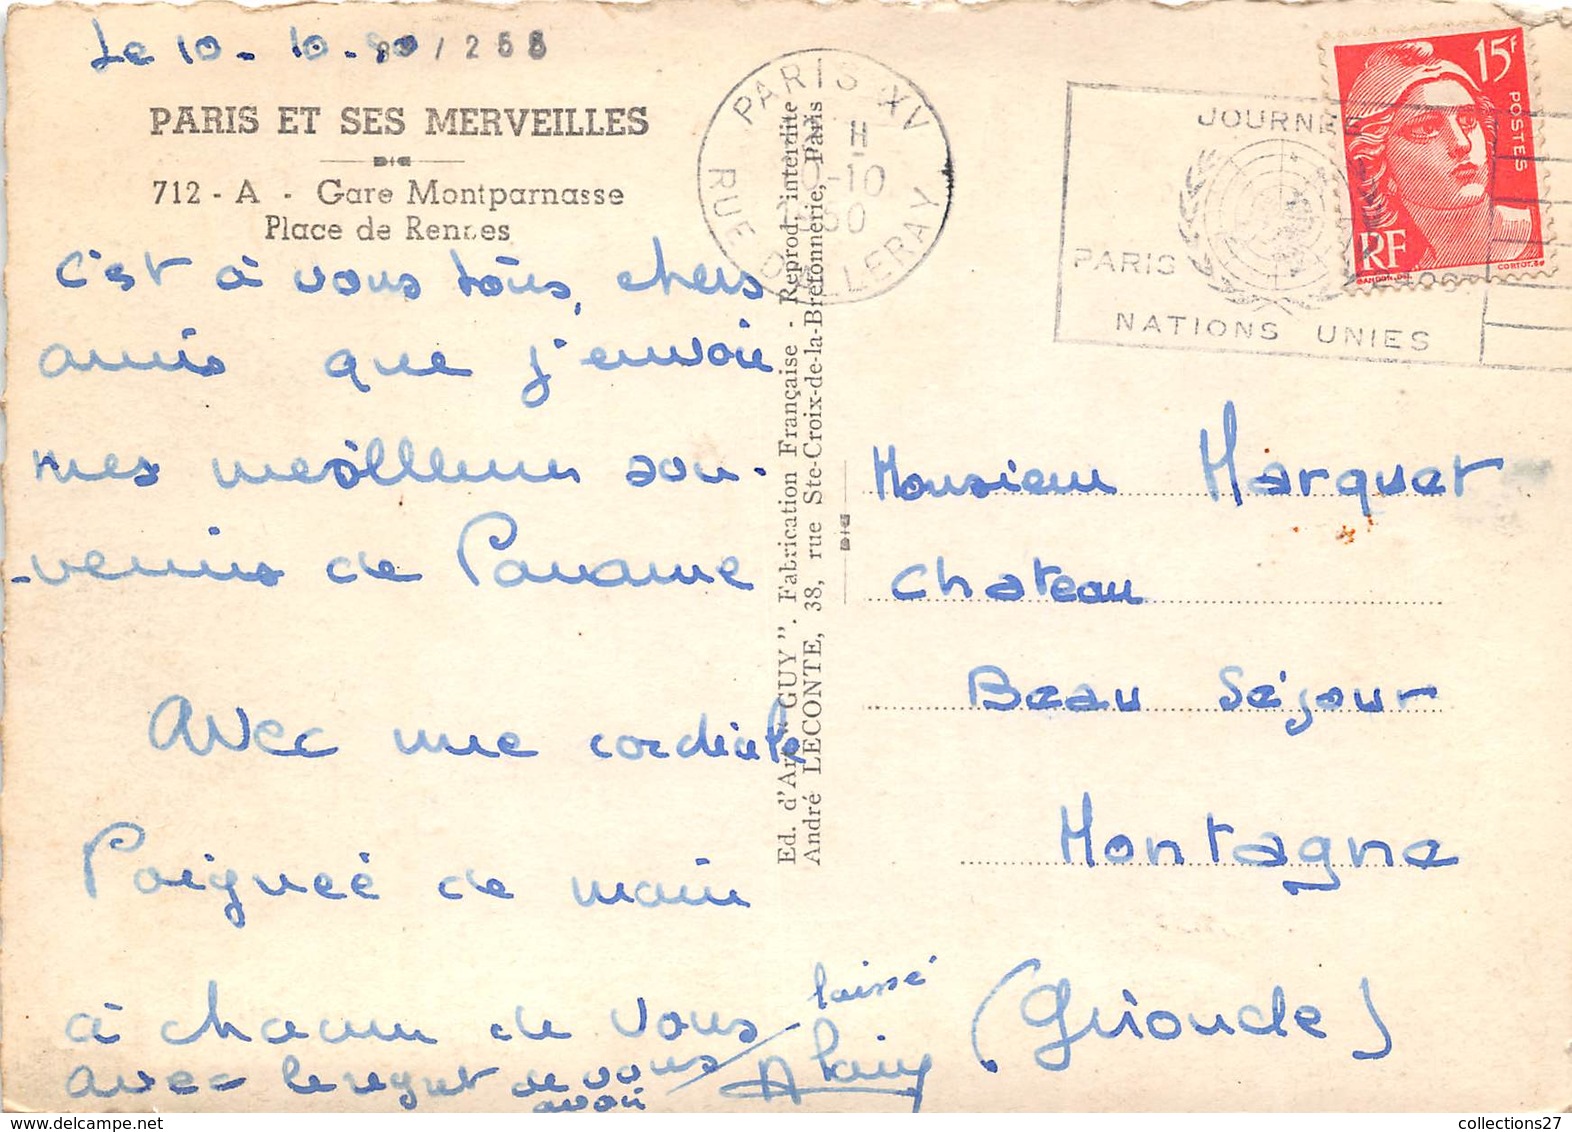 Le 10 - 10 - 50 / 258
PARIS ET SES MERVEILLES
712 - A - Gare Montparnasse
Place de Rennes
c'est à vous tous, chers
amis que j'envoie
mes meilleurs sou-
-venirs de Paname
Avec une cordiale
Poignée de main
à chacun de vous
avec le regret de vous
avoir
laissé
Alain
Ed. d'Art "GUY". Fabrication Française - Reprod. interdite
André LECONTE, 38, rue Ste-Croix-de-la-Bretonnerie, Paris
PARIS XV
H
-10
50
RUE D'ALLERAY
JOURNEE
PARIS
NATIONS UNIES
15F
POSTES
RF
GANDON. DEL.
CORTOT. SC
Monsieur Marquet
Chateau
Beau Séjour
Montagne
(Gironde)
collections27